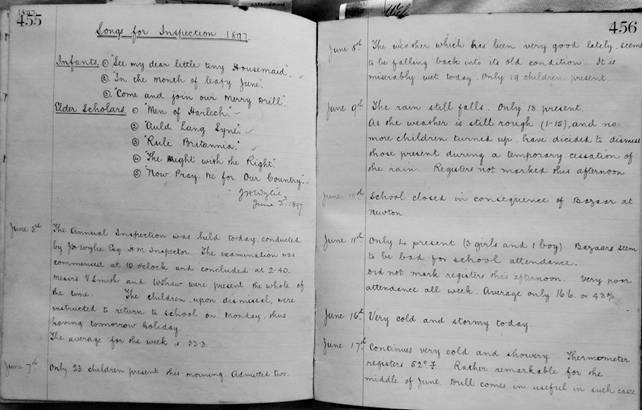 455
Songs for Inspection 1897
Infants ① "See my dear little tiny Housemaid".
② "In the month of leafy June."
③ "Come and join our Merry Drill."
Elder Scholars ① "Men of Harlech"
② "Auld Lang Syne"
③ "Rule Britannia"
④ "The Might with the Right"
⑤ "Now Pray We for Our Country"
June 3rd 1897
June 3rd The Annual Inspection was held today conducted
by Esq H.M Inspector. The examination was
commenced at 10 o'clock and concluded at 2-40.
Messrs and were present the whole of
the time. The children upon dismissal, were
instructed to return to school on Monday, thus
having tomorrow holiday.
The average for the week is 22.3.
June 7th Only 23 children present this morning. Admitted two.
456
June 8th The weather which has been very good lately, seems
to be falling back into its old condition. It is
miserably wet today. Only 19 children present
June 9th The rain still falls. Only 13 present.
As the weather is still rough (1-15), and no
more children turned up have decided to dismiss
those present during a temporary cessation of
the rain. Registers not marked this afternoon
June 10th School closed in consequence of Bazaar at
Newton
June 11th Only 4 present (3 girls and 1 boy). Bazaars seem
to be bad for school attendance.
Did not mark registers this afternoon. Very poor
attendance all week. Average only 16.6. or
June 16th Very cold and stormy today
June 17th Continues very cold and showery Thermometer
registers 52° F Rather remarkable for the
middle of June. Drill comes in useful in such case